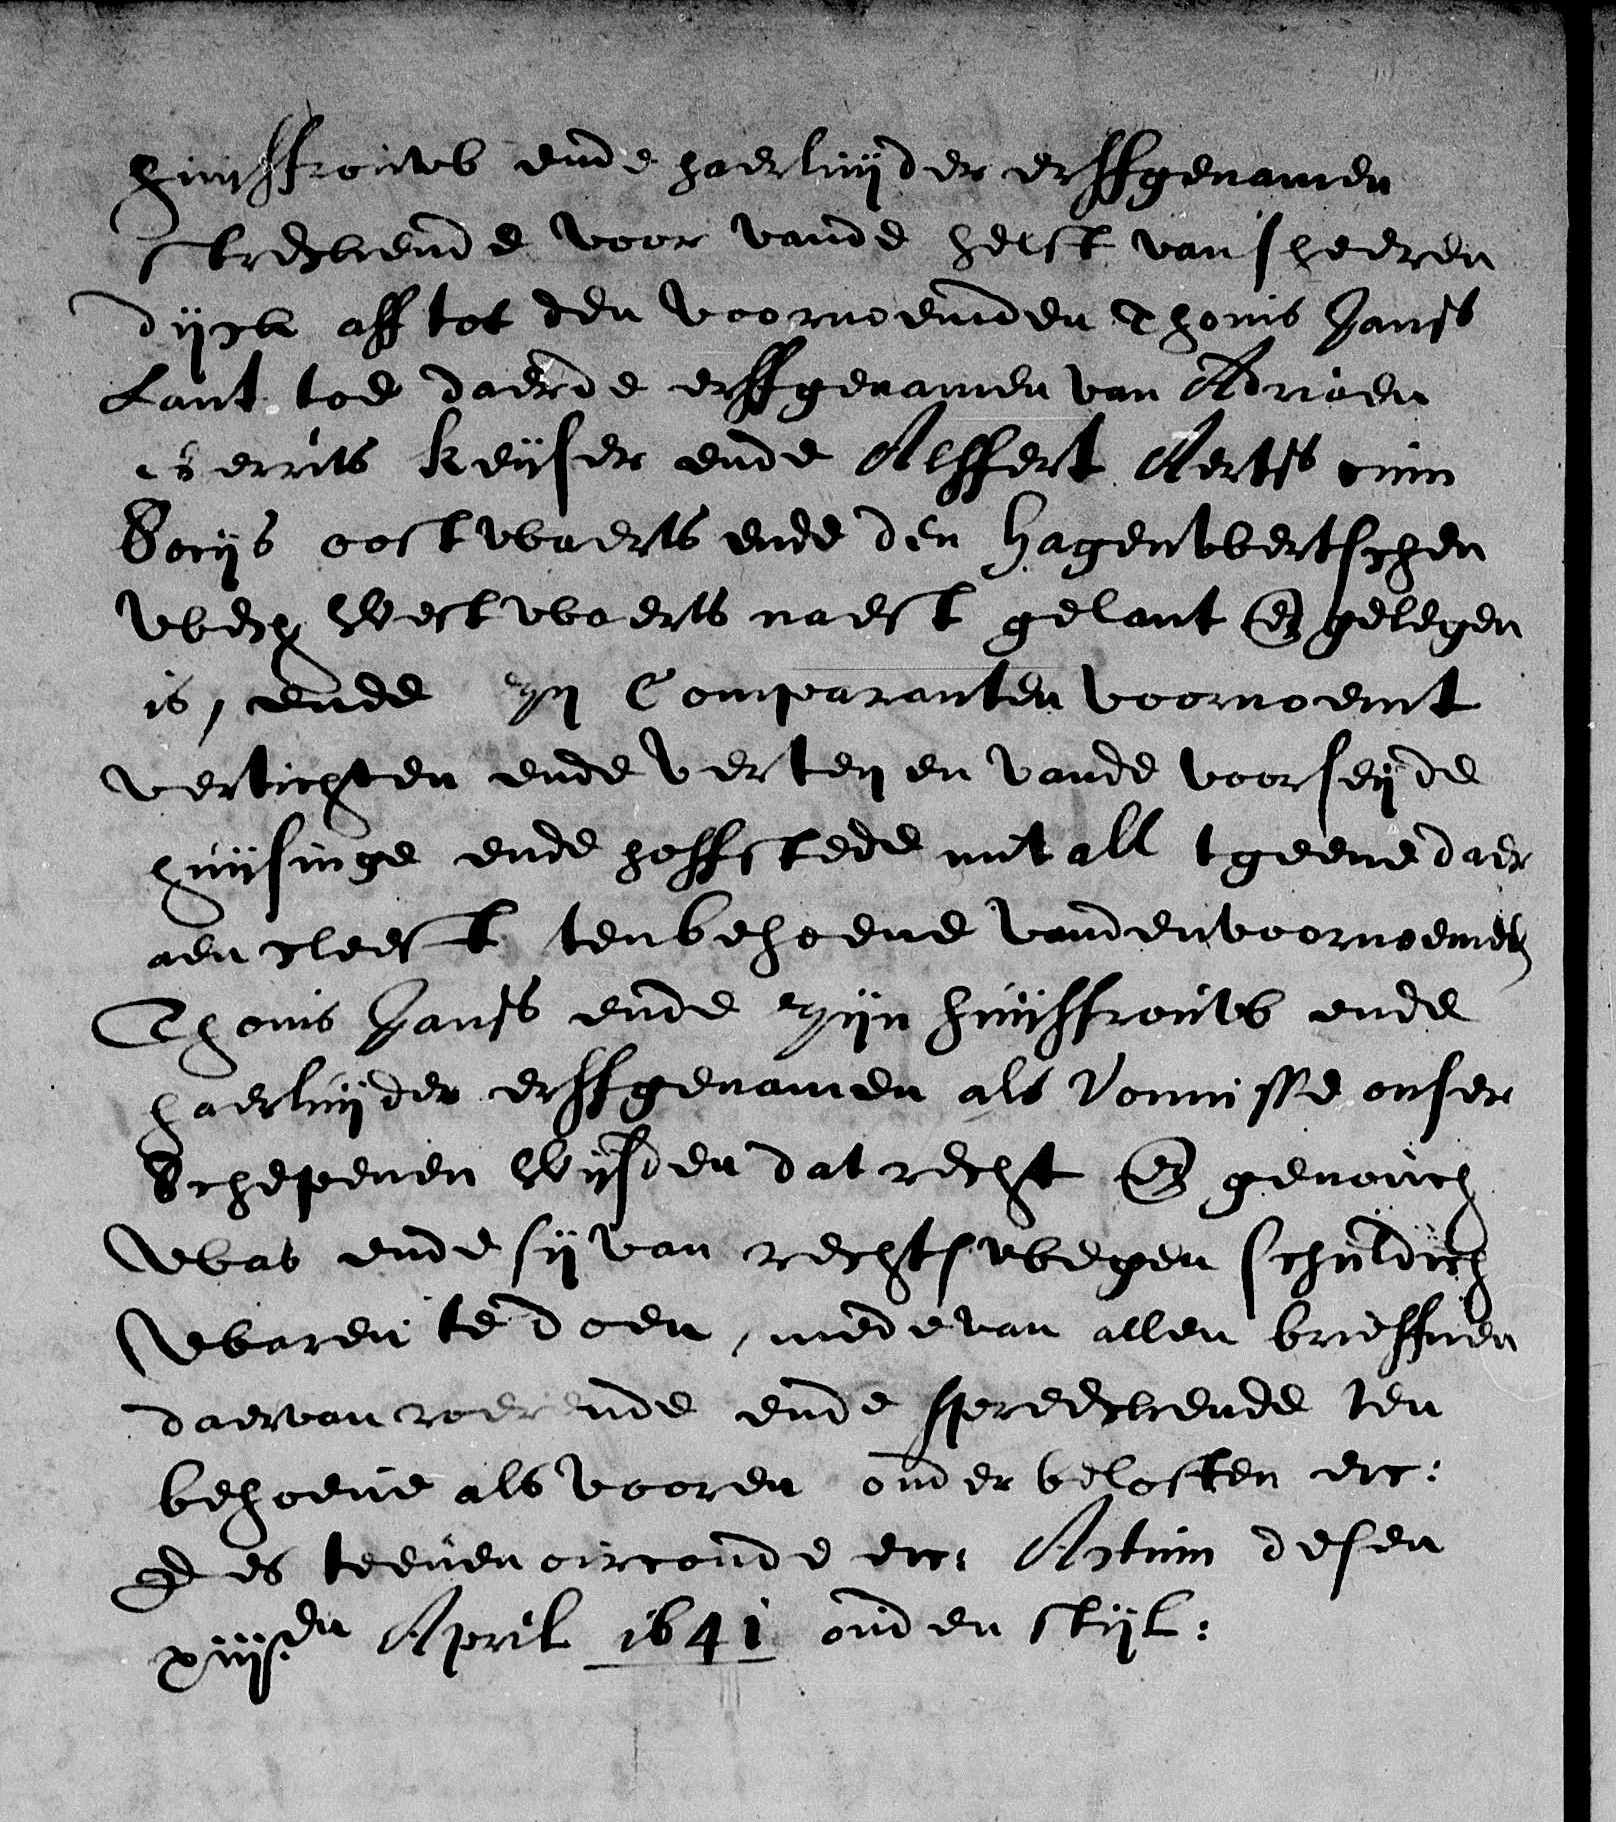 huijsfrouwe ende haerluijder erffgenamen
streckende voor vande helst van sheeren
dijck aff tot den voornoemden Thonis Janss
Lant toe daer de erffgenamen van Adriaen
Gerrits Keijser ende Alffert Aertss cum
Socijs oostwaerts ende den Hagenwertschen
wech Westwaerts naest gelant & gelegen
is, ende zij Comparanten voornoemt
vertichten ende verteyen vande voorseijde
huijsinge ende hoffstede mit all tgeene daer
aen cleeft ten behoeve vanden voornoemden
Thonis Janss ende zijn huijsfrouwe ende
haerluijder erffgenamen als Vonnisse onser
Schepenen Wijsden dat recht & genouch
was ende sij van rechtswegen schuldich
waren te doen, mede van allen brieffven
daervan roerende ende spreeckende ten
behoeve als vooren onder beloften etc:
Des teenen oirconde etc: Actum desen
xiiijs.en April 1641 ouden stijl: